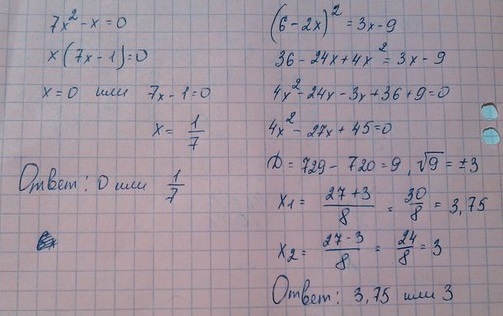 7x² - x = 0
x(7x - 1) = 0
x = 0 или 7x - 1 = 0
x = 1/7
Ответ: 0 или 1/7
(6 - 2x)² = 3x - 9
36 - 24x + 4x² = 3x - 9
4x² - 24x - 3x + 36 + 9 = 0
4x² - 27x + 45 = 0
D = 729 - 720 = 9, √9 = ±3
x₁ = (27 + 3)/8 = 30/8 = 3,75
x₂ = (27 - 3)/8 = 24/8 = 3
Ответ: 3,75 или 3